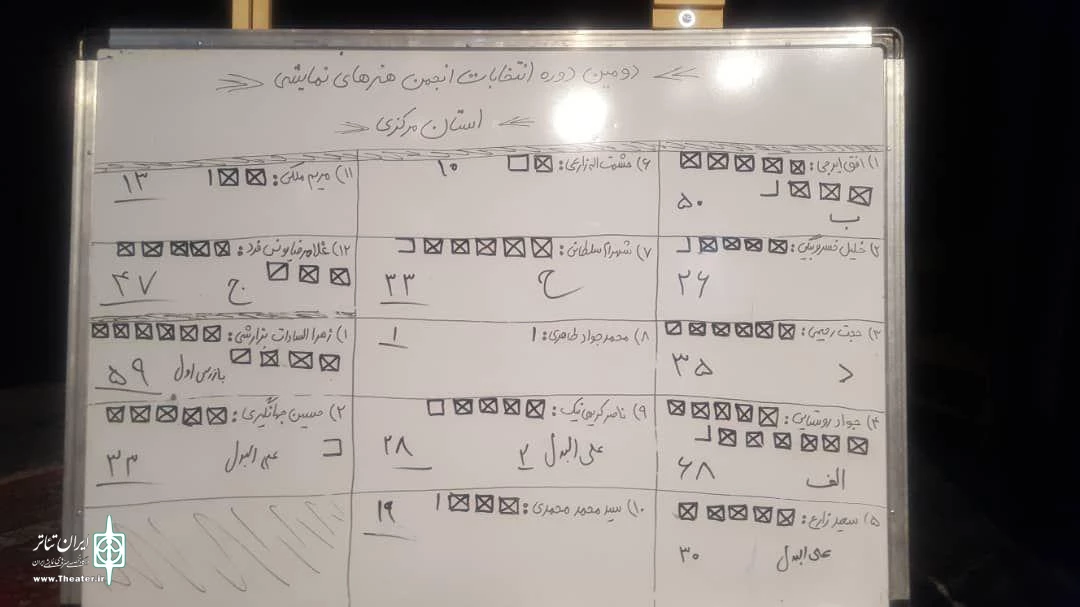 دومین دوره انتخابات انجمن هنرهای نمایشی
استان مرکزی
۱) افق ایرجی:
۵۰
ب
۲) خلیل خسروبیگی:
۲۶
۳) حجت رحیمی:
۳۵
د
۴) جواد روستایی:
۶۸
الف
۵) سعید زارع:
۳۰
علی البدل
۶) حشمت اله زارعی:
۱۰
۷) شهرام سلطانی:
۳۳
ح
۸) محمدجواد طاهری:
۱
۹) ناصر کریمی نیک:
۲۸
علی البدل ۲
۱۰) سید محمد محمدی:
۱۹
۱۱) مریم ملکی:
۱۳
۱۲) غلامرضا یونس فرد:
۴۷
ج
۱) زهرا السادات بزارشی:
۵۹
بازرس اول
۲) حسین جهانگیری:
۳۳
علی البدل
ایران تئاتر
www.Theater.ir